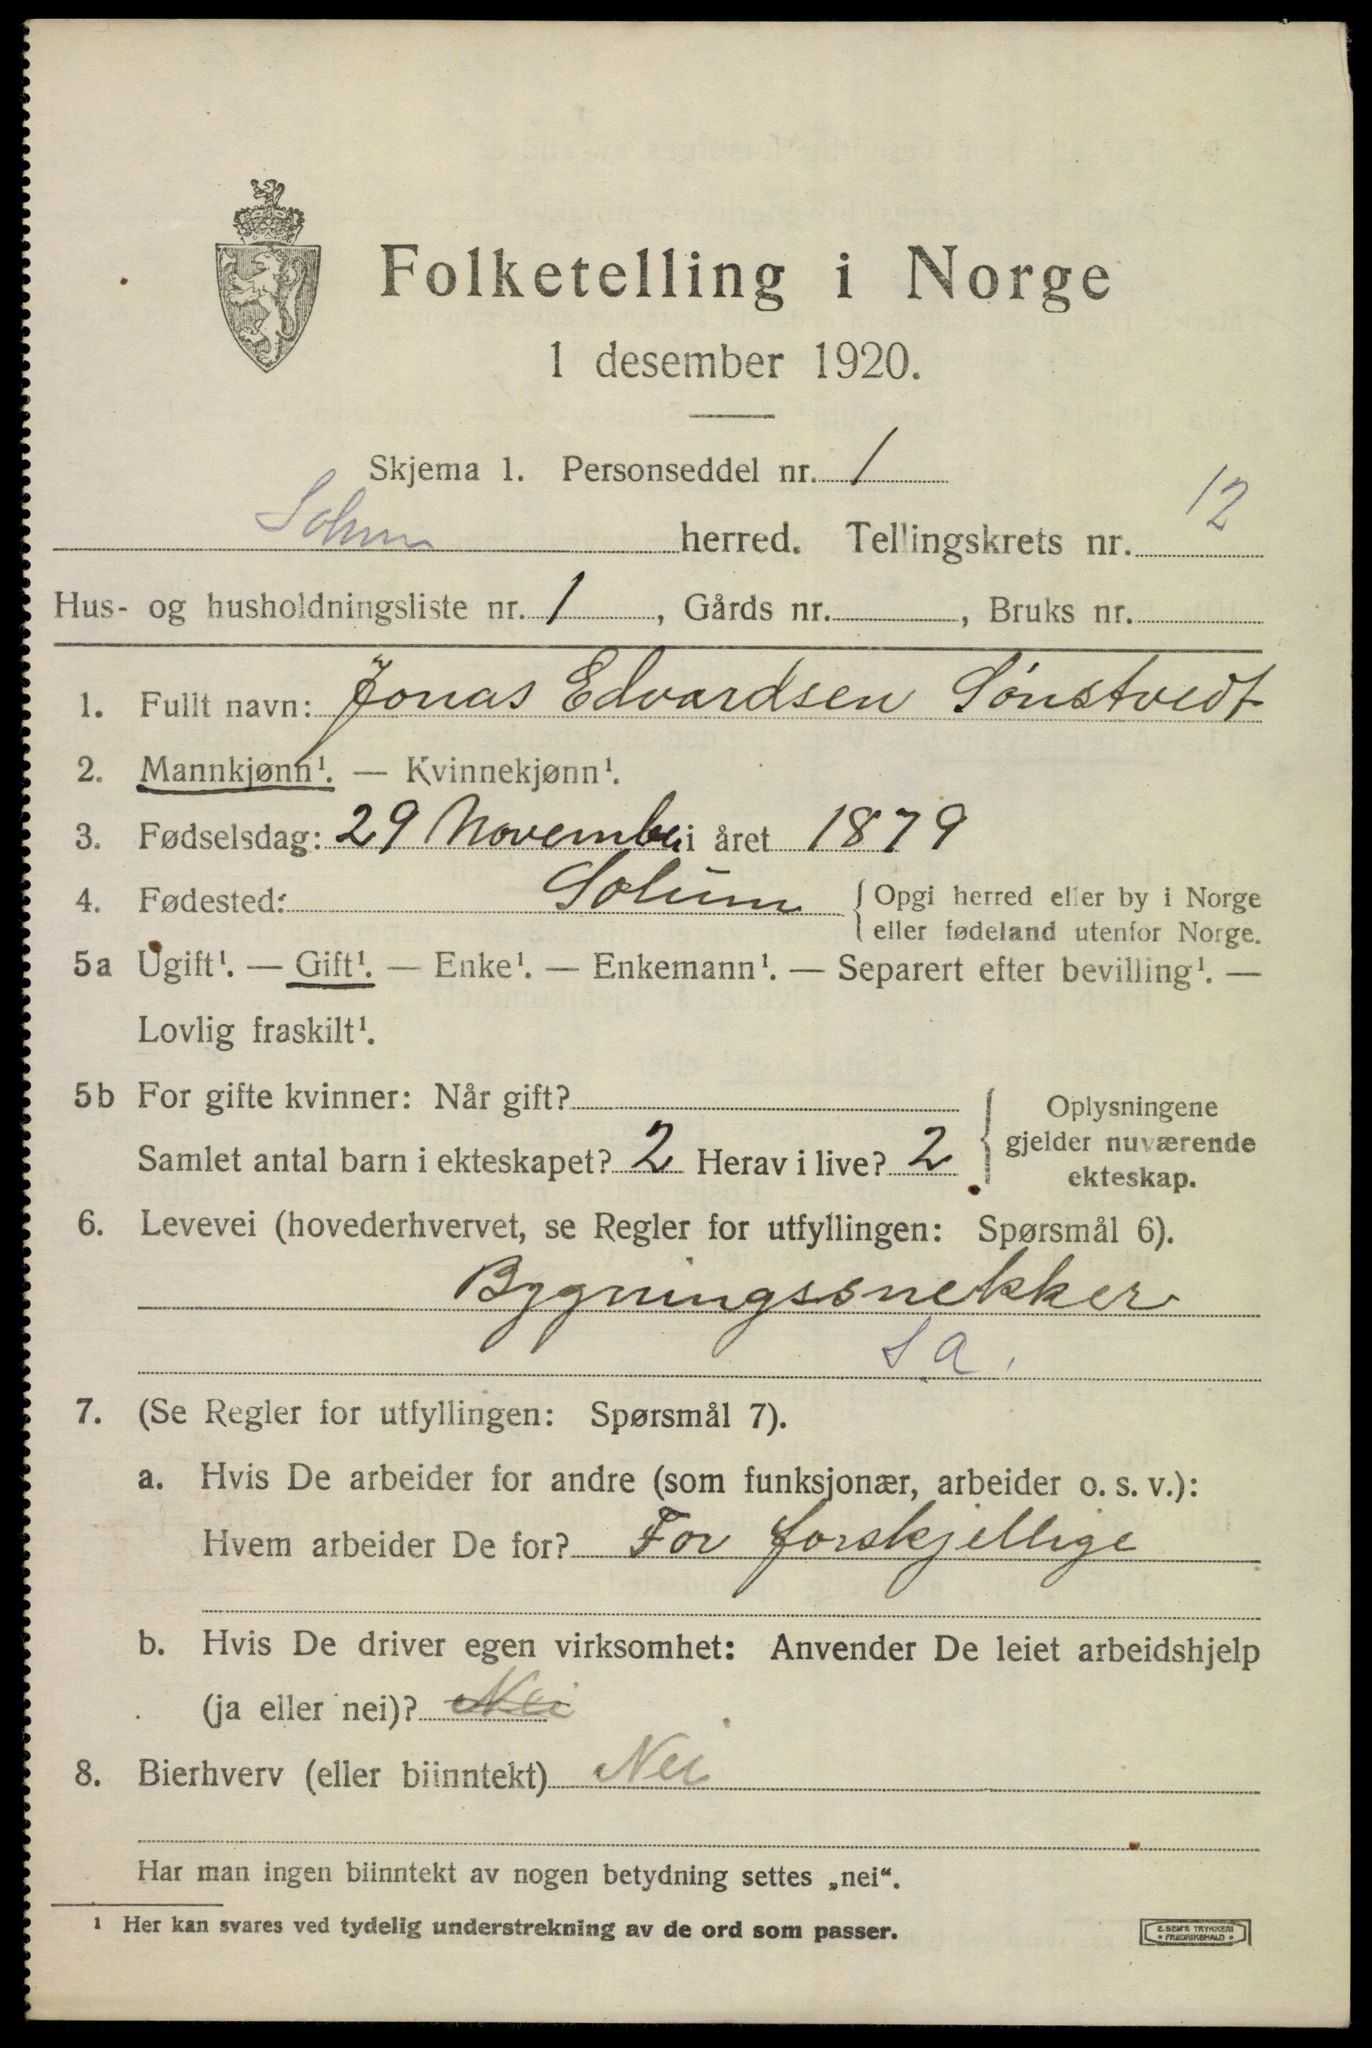 Folketelling i Norge
1 desember 1920.
Skjema 1. Personseddel nr. 1
Solum herred. Tellingskrets nr. 12
Hus- og husholdningsliste nr. 1, Gårds nr. , Bruks nr.
1. Fullt navn: Jonas Edvardsen Sönstvedt
2. Mannkjønn¹. — Kvinnekjønn¹.
3. Fødselsdag: 29 November i året 1879
4. Fødested: Solum { Opgi herred eller by i Norge
eller fødeland utenfor Norge.
5a Ugift¹. — Gift¹. — Enke¹. — Enkemann¹. — Separert efter bevilling¹. —
Lovlig fraskilt¹.
5b For gifte kvinner: Når gift?
Samlet antal barn i ekteskapet? 2 Herav i live? 2
{ Oplysningene
gjelder nuværende
ekteskap.
6. Levevei (hovederhvervet, se Regler for utfyllingen: Spørsmål 6).
Bygningssnekker
S a.
7. (Se Regler for utfyllingen: Spørsmål 7).
a. Hvis De arbeider for andre (som funksjonær, arbeider o. s. v.):
Hvem arbeider De for? For forskjellige
b. Hvis De driver egen virksomhet: Anvender De leiet arbeidshjelp
(ja eller nei)? Nei
8. Bierhverv (eller biinntekt) Nei
Har man ingen biinntekt av nogen betydning settes „nei“.
¹ Her kan svares ved tydelig understrekning av de ord som passer.
E. SEM'S TRYKKERI
• FREDRIKSHALD •